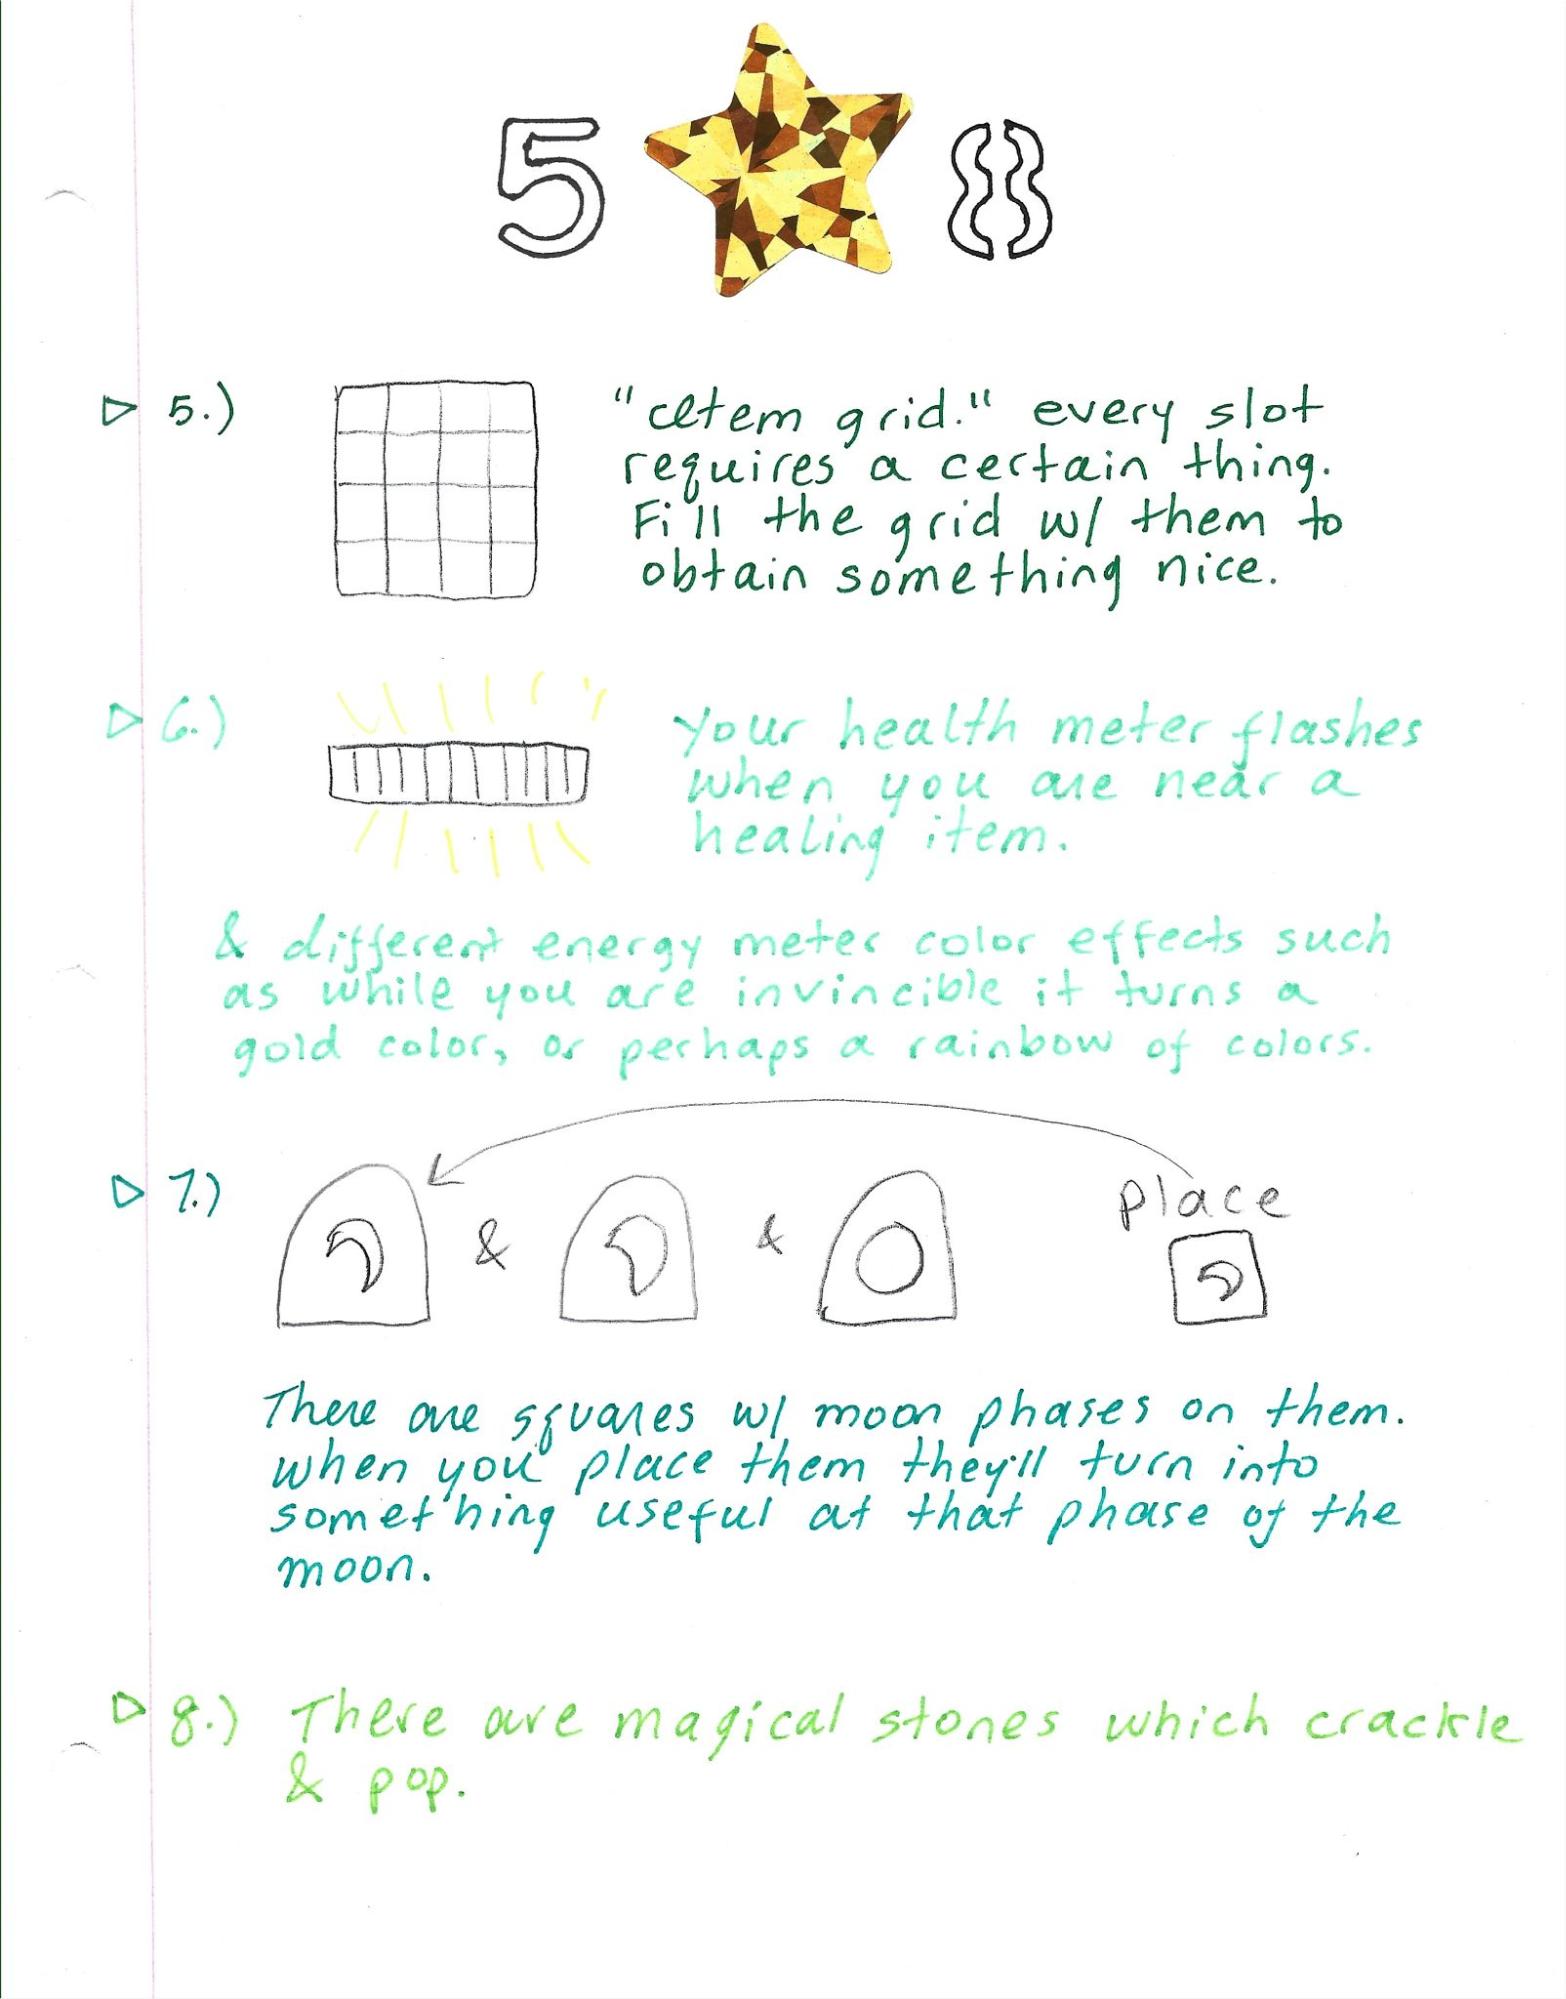 5 8
▷ 5.) "Item grid." every slot
requires a certain thing.
Fill the grid w/ them to
obtain something nice.
▷ 6.) Your health meter flashes
when you are near a
healing item.
& different energy meter color effects such
as while you are invincible it turns a
gold color, or perhaps a rainbow of colors.
▷ 7.) & & Place
There are squares w/ moon phases on them.
when you place them they'll turn into
something useful at that phase of the
moon.
▷ 8.) There are magical stones which crackle
& pop.